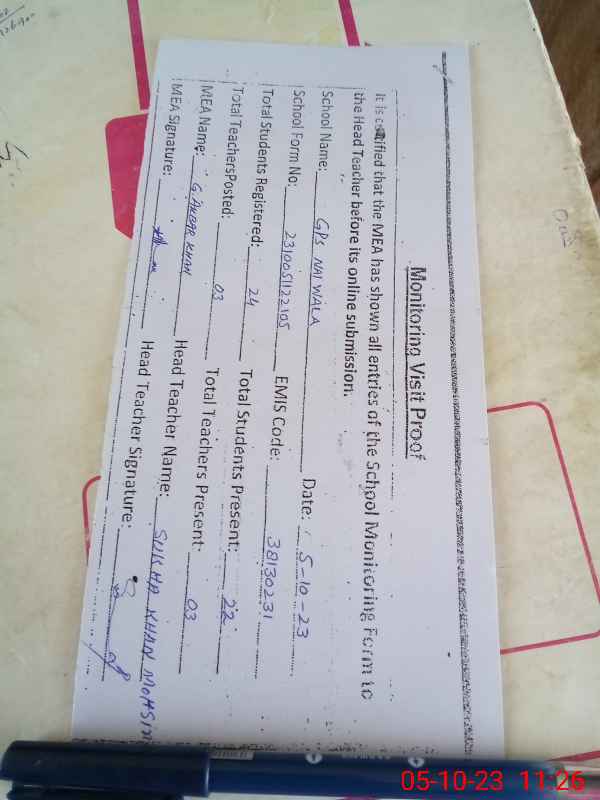 Monitoring Visit Proof
It is certified that the MEA has shown all entries of the School Monitoring Form to
the Head Teacher before its online submission.
School Name: GPS NAI WALA Date: 5-10-23
School Form No: 2310051122105 EMIS Code: 38130231
Total Students Registered: 24 Total Students Present: 22
Total TeachersPosted: 03 Total Teachers Present: 03
MEA Name: G. AKBAR KHAN Head Teacher Name: SUKHA KHAN MOHSIN
MEA Signature: Head Teacher Signature:
05-10-23 11:26